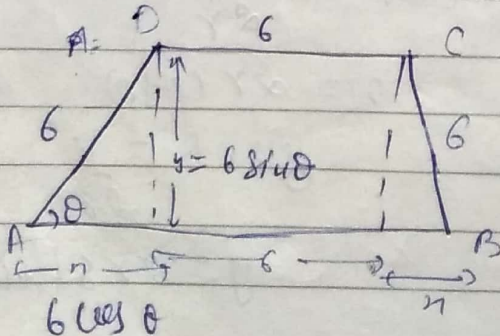 A= D 6 C
6 y = 6 sinθ 6
θ
A B
n 6 n
6 cos θ